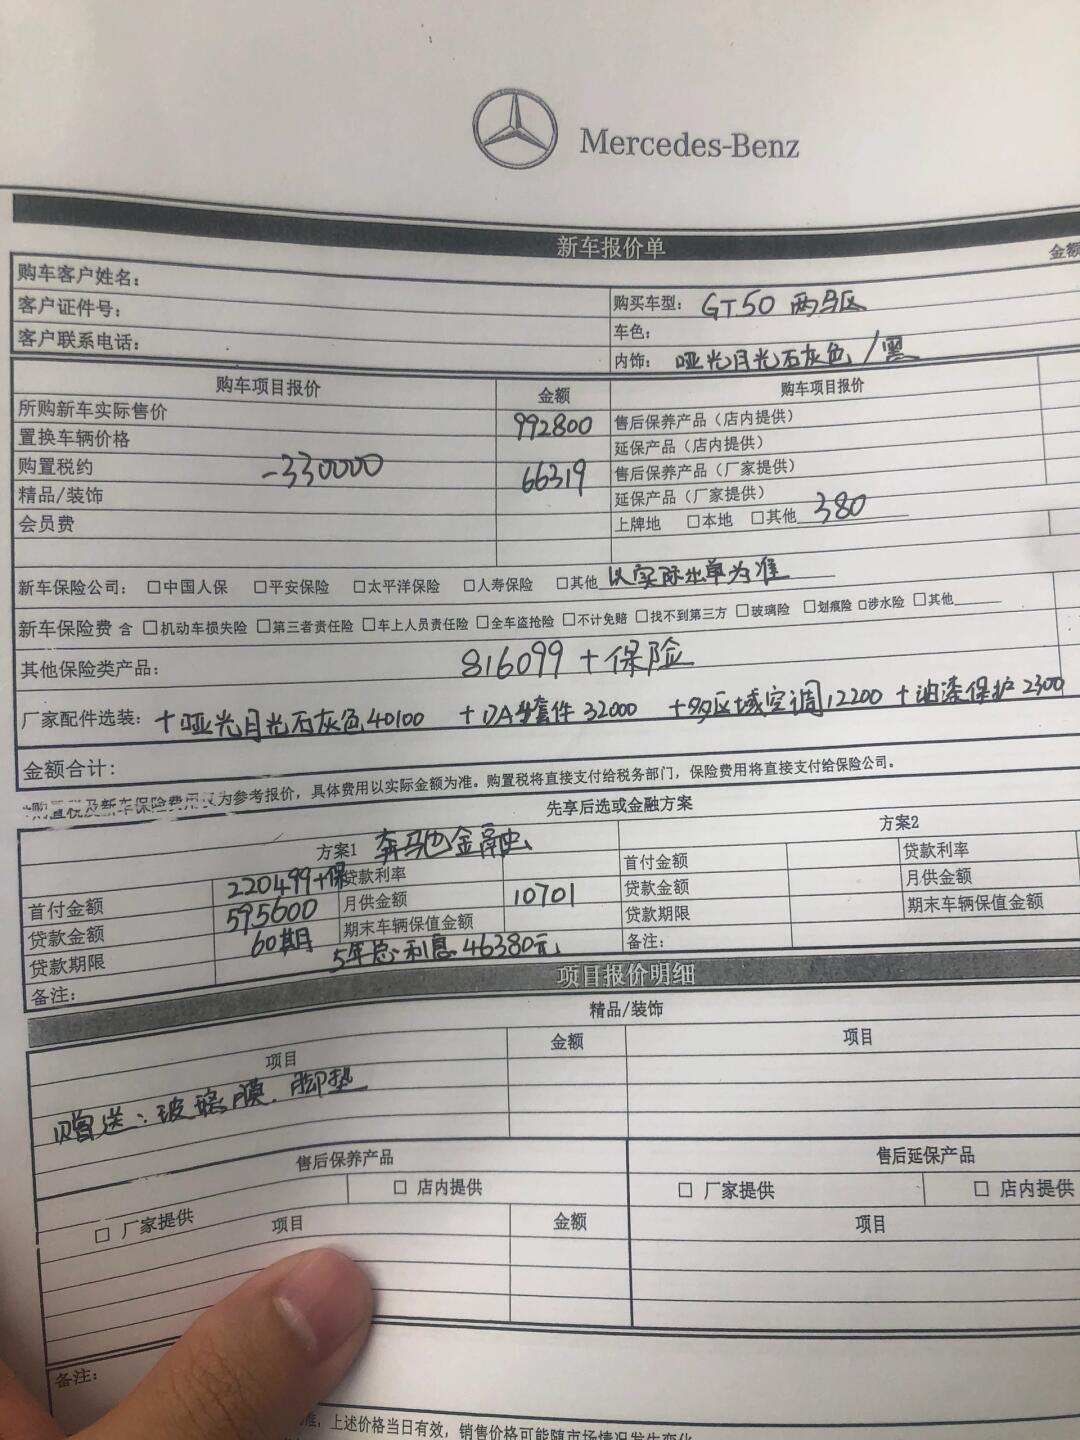 Mercedes-Benz
新车报价单
金额
购车客户姓名：
客户证件号：
购买车型： GT50 两驱
客户联系电话：
车色：
内饰： 哑光月光石灰色/黑
购车项目报价 金额 购车项目报价
所购新车实际售价 992800 售后保养产品（店内提供）
置换车辆价格 延保产品（店内提供）
购置税约 -330000 66319 售后保养产品（厂家提供）
精品/装饰 延保产品（厂家提供）
会员费 上牌地 □本地 □其他 380
新车保险公司： □中国人保 □平安保险 □太平洋保险 □人寿保险 □其他 以实际出单为准
新车保险费 含 □机动车损失险 □第三者责任险 □车上人员责任险 □全车盗抢险 □不计免赔 □找不到第三方 □玻璃险 □划痕险 □涉水险 □其他
其他保险类产品： 816099 + 保险
厂家配件选装： +哑光月光石灰色40100 + 套件 32000 +多区域空调12200 +油漆保护2300
金额合计：
*购置税及新车保险费用仅为参考报价，具体费用以实际金额为准。购置税将直接支付给税务部门，保险费用将直接支付给保险公司。
先享后选或金融方案
方案1 奔驰金融 方案2
首付金额 220499+保 贷款利率 首付金额 贷款利率
贷款金额 595600 月供金额 10701 贷款金额 月供金额
贷款期限 60期 期末车辆保值金额 贷款期限 期末车辆保值金额
备注： 5年总利息46380元 备注：
项目报价明细
精品/装饰
项目 金额 项目
赠送：玻璃膜、脚垫
售后保养产品 售后延保产品
□ 厂家提供 □ 店内提供 □ 厂家提供 □ 店内提供
项目 金额 项目
备注：
准，上述价格当日有效，销售价格可能随市场情况发生变化